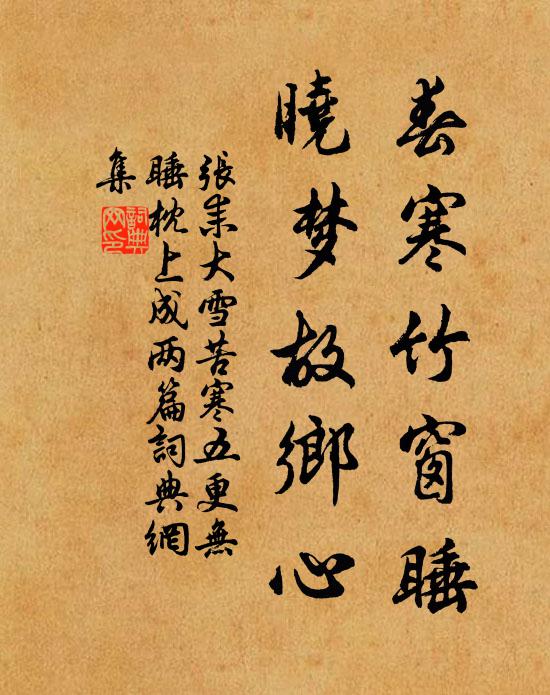 春寒竹窗睡
曉梦故鄉心
張耒大雪苦寒五更無
睡枕上成两篇詞典網
集
詞典
网印